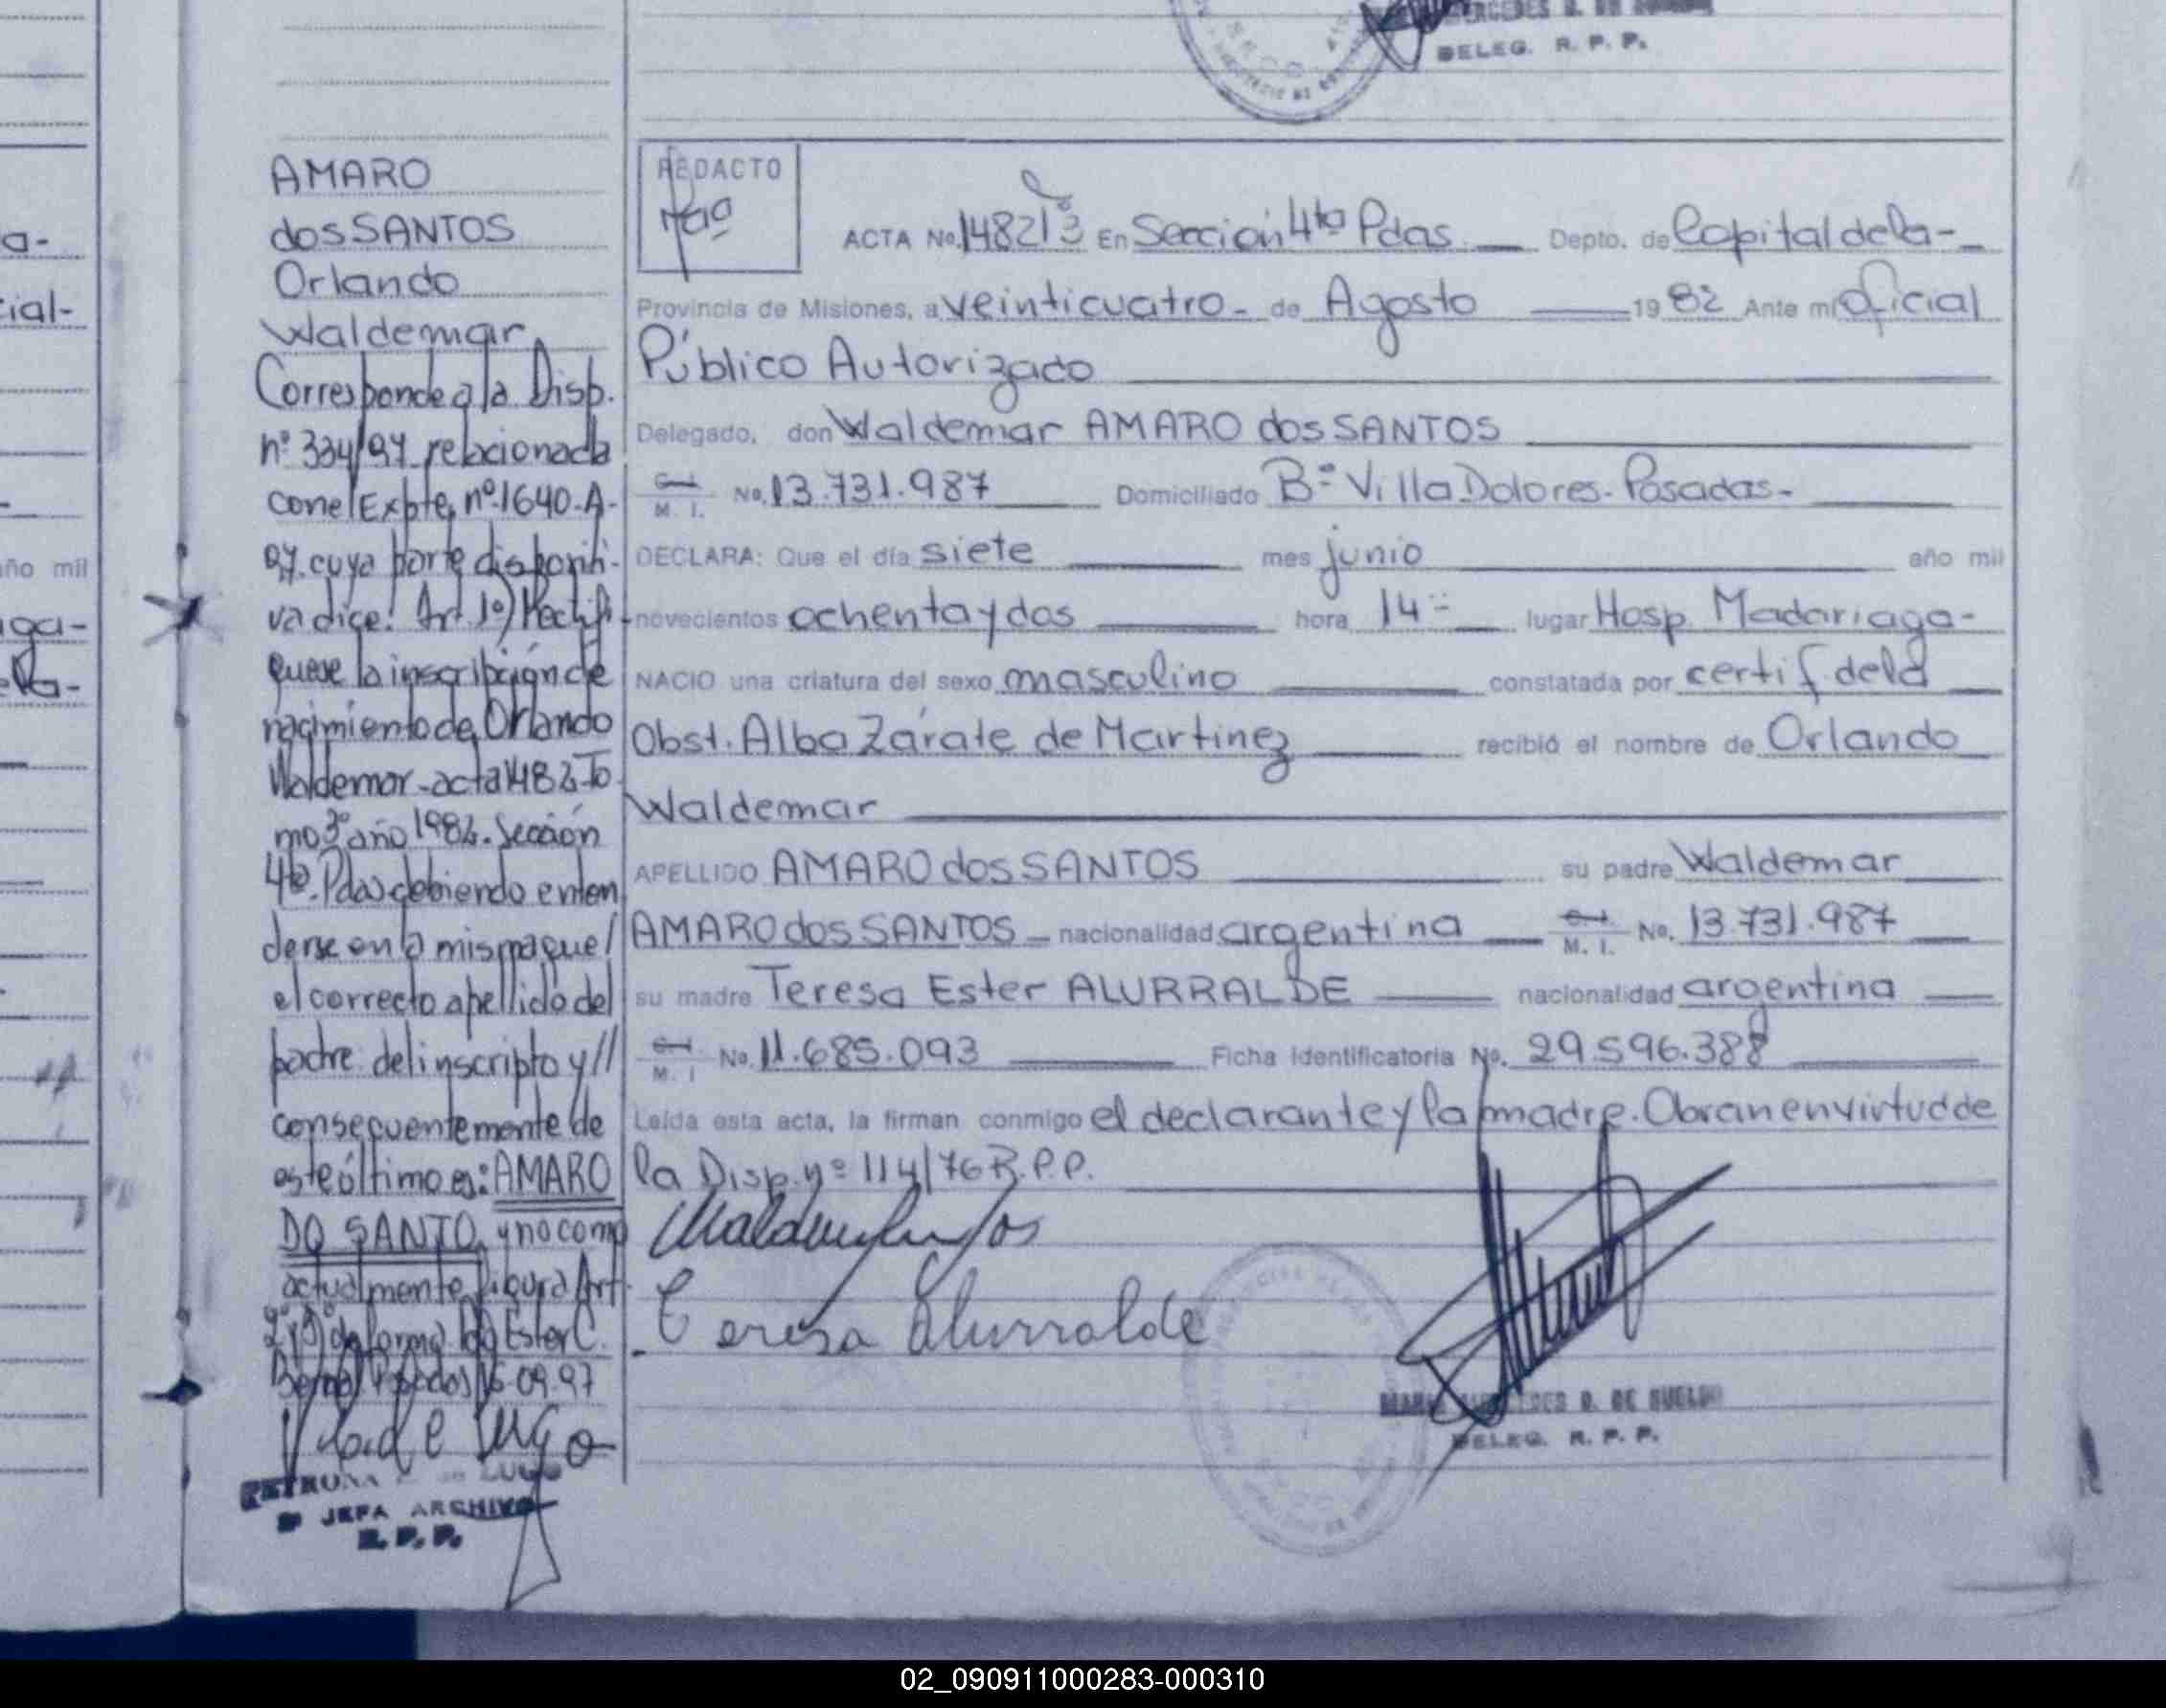 DELEG. R. P. P.
AMARO
dos SANTOS
Orlando
Waldemar
Corresponde a la Disp.
nº 334/97 relacionada
con el Expte. nº 1640-A-
97. cuya parte dispositi-
va dice: Art. 1º) Rectifi-
quese la inscripción de
nacimiento de Orlando
Waldemar - acta 1482 - To
mo 3º año 1982. Sección
4ta. Pdas debiendo enten
derse en la misma que/
el correcto apellido del
padre del inscripto y//
consecuentemente de
este último es: AMARO
DO SANTO y no como
actualmente figura Art.
2º y 3º) de forma. Fdo Ester C.
Bernal Posadas 16-09-97
JEFA ARCHIVO
R. P. P.
REDACTO
ACTA No. 1482 Tº3 En Sección 4ta Pdas. Depto. de Capital de la-
Provincia de Misiones, a veinticuatro- de Agosto 1982 Ante mí Oficial
Público Autorizado
Delegado, don Waldemar AMARO dos SANTOS
M. I. No. 13.731.987 Domiciliado Bº Villa Dolores- Posadas-
DECLARA: Que el día siete mes junio año mil
novecientos ochenta y dos hora 14 lugar Hosp. Madariaga-
NACIO una criatura del sexo masculino constatada por certif. de la
Obst. Alba Zárate de Martinez recibió el nombre de Orlando
Waldemar
APELLIDO AMARO dos SANTOS su padre Waldemar
AMARO dos SANTOS - nacionalidad argentina M. I. No. 13.731.987
su madre Teresa Ester ALURRALDE nacionalidad argentina
M. I No. 11.685.093 Ficha Identificatoria No. 29.596.388
Leída esta acta, la firman conmigo el declarante y la madre. Obran en virtud de
la Disp. nº 114/76 R.P.P.
Teresa Alurralde
MARIA MERCEDES D. DE SUELDO
DELEG. R. P. P.
02_090911000283-000310